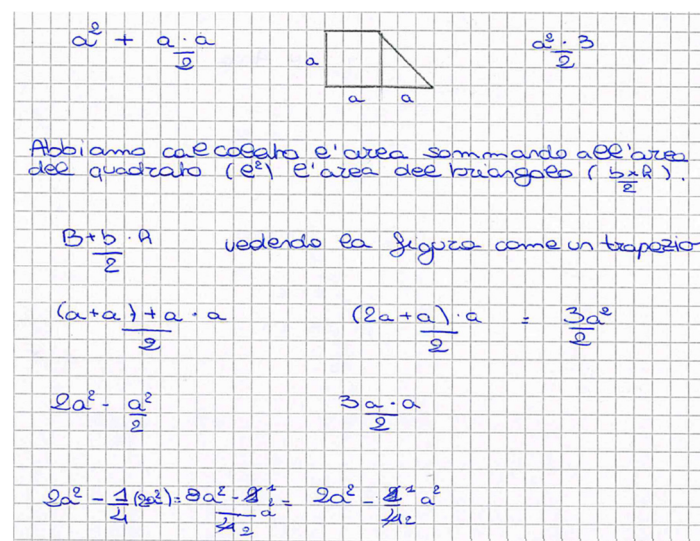 a² + a·a/2    a²·3/2
a
a a
Abbiamo calcolato l'area sommando all'area
del quadrato (l²) l'area del triangolo (b×h/2).
B+b·h/2    vedendo la figura come un trapezio
(a+a)+a·a/2    (2a+a)·a/2 = 3a²/2
2a² - a²/2    3a·a/2
2a² - 1/4(2a²) =    =    2a² -